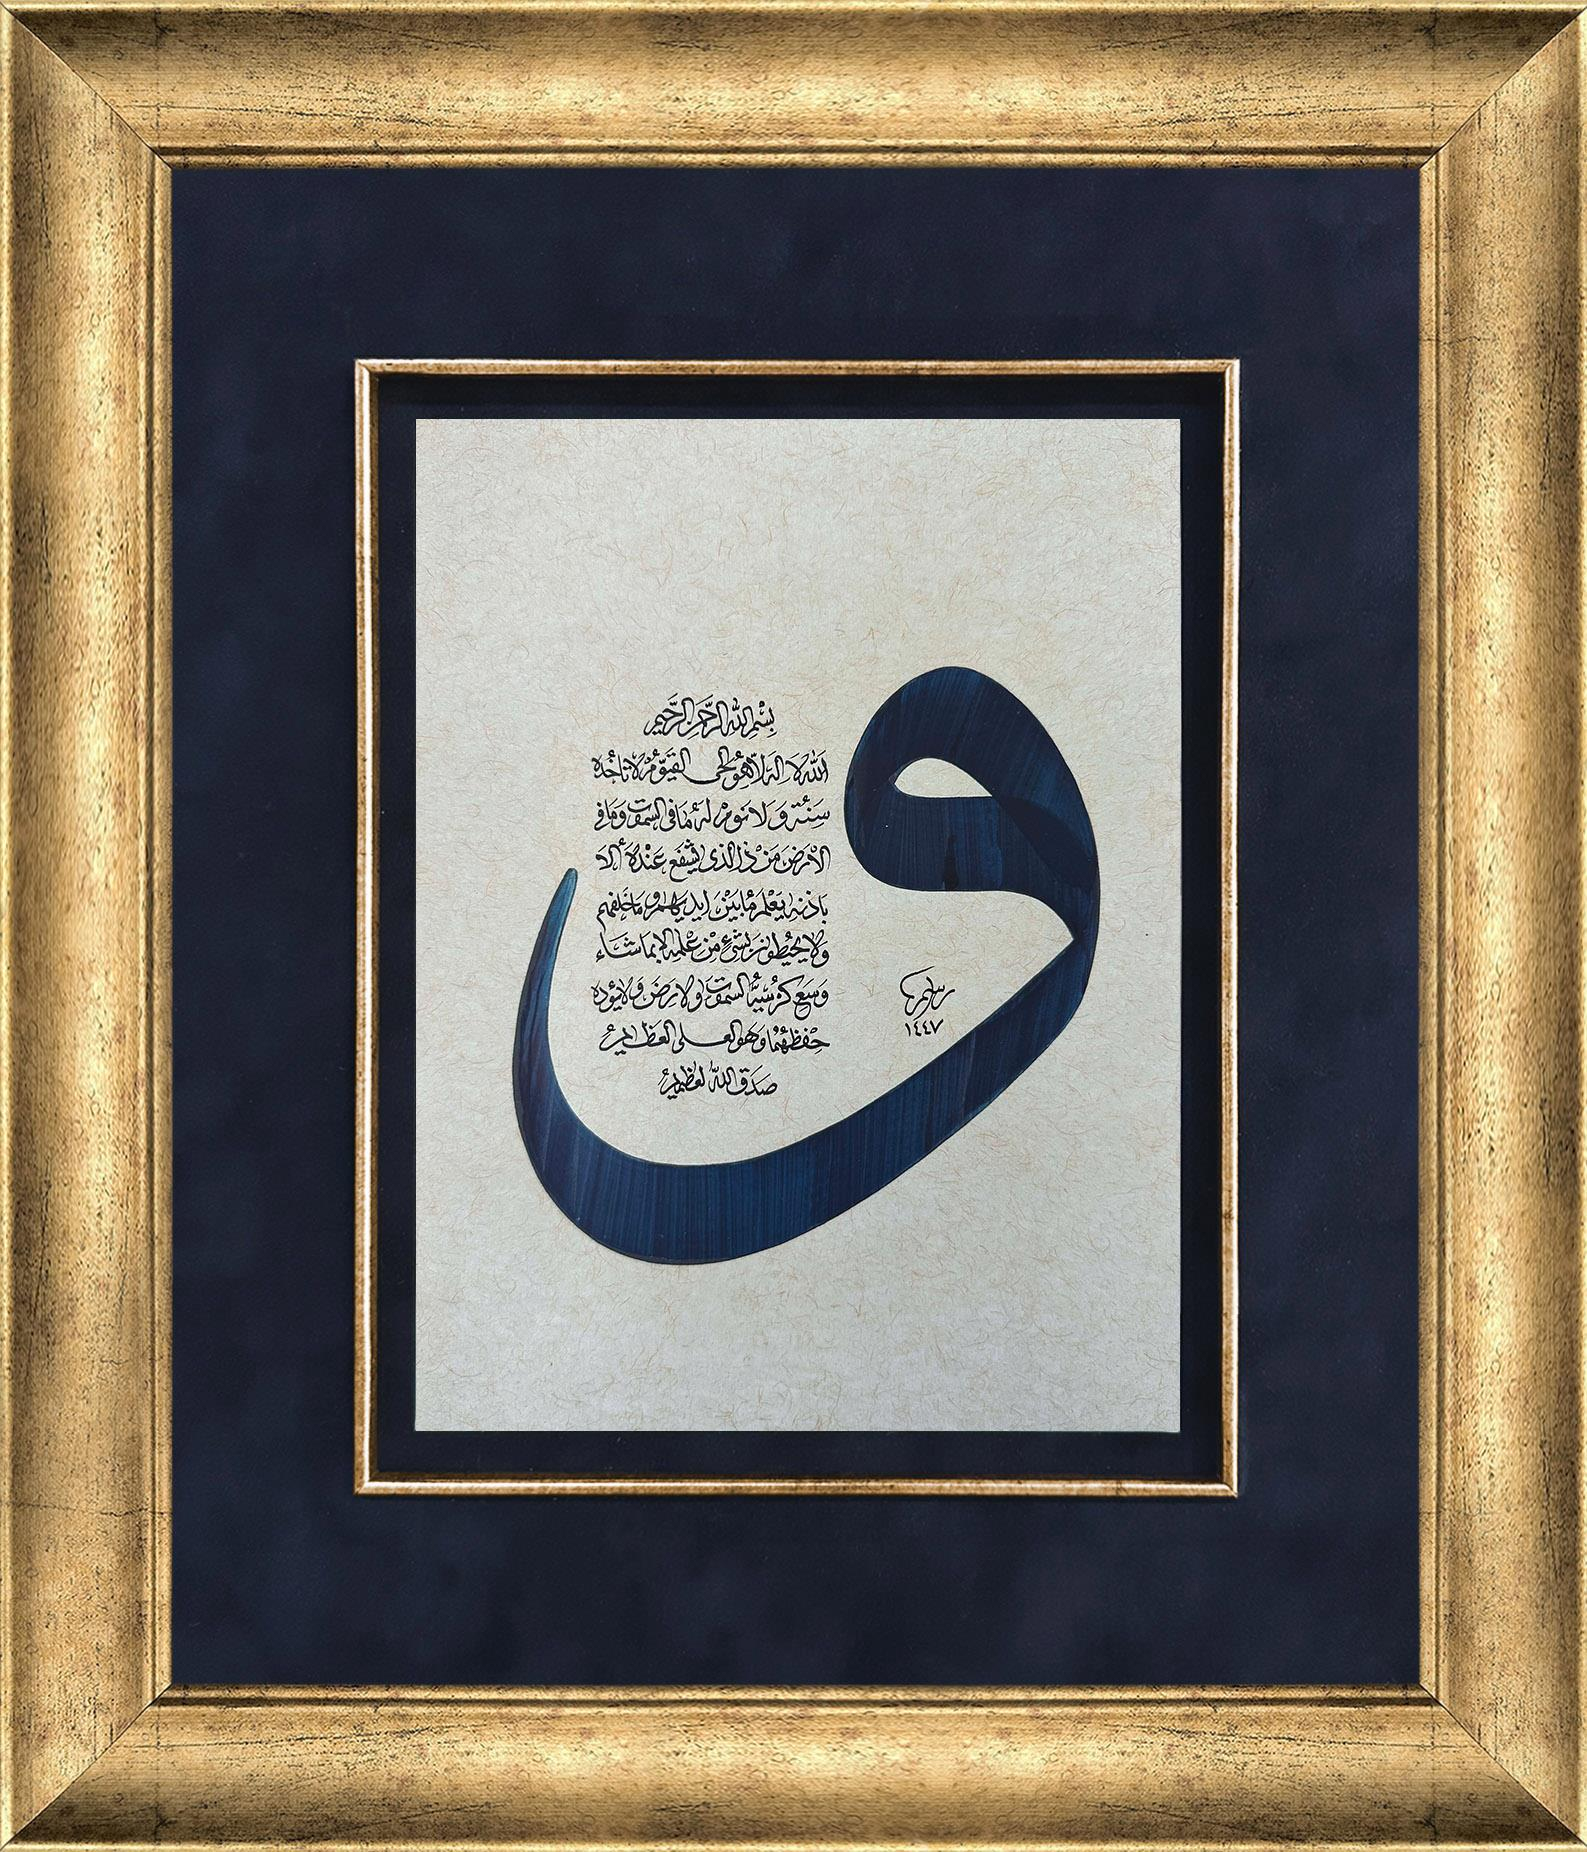 و
بسم الله الرحمن الرحيم
الله لا اله الا هو الحي القيوم لا تاخذه
سنة ولا نوم له ما في السموت وما في
الارض من ذا الذي يشفع عنده الا
باذنه يعلم ما بين ايديهم وما خلفهم
ولا يحيطون بشيء من علمه الا بما شاء
وسع كرسيه السموت والارض ولا يؤده
حفظهما وهو العلي العظيم
صدق الله العظيم
١٤٤٧